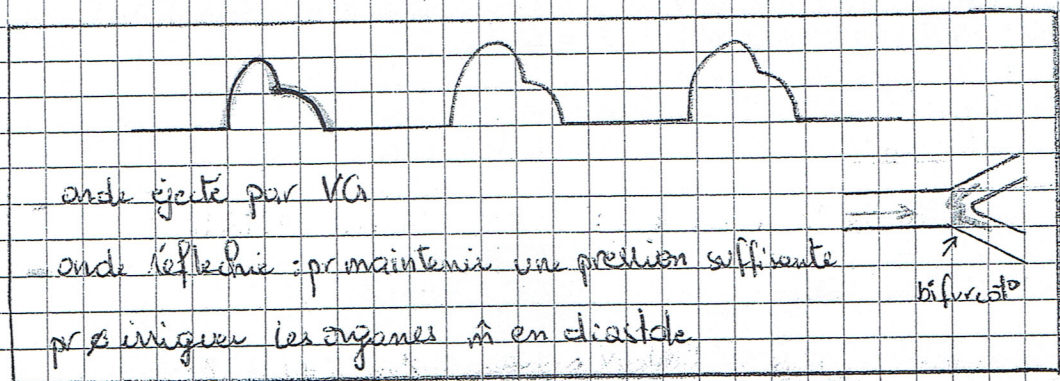 onde éjecté par VG
onde réflechie : pr maintenir une pression suffisante
bifurcat°
pr irriguer les organes m̂ en diastole